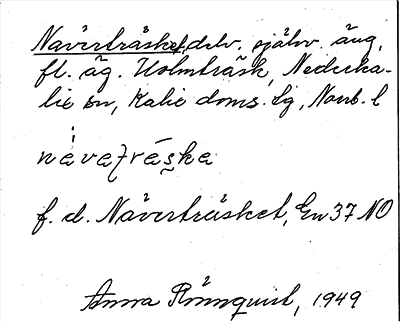 Näverträsket, delv. självv. äng,
fl. äg. Holmträsk, Nederka-
lix sn, Kalix doms. lg, Norrb. l
návaʒrá̀ska
f. d. Näverträsket, En 37 NO
Anna Rönnquist, 1949